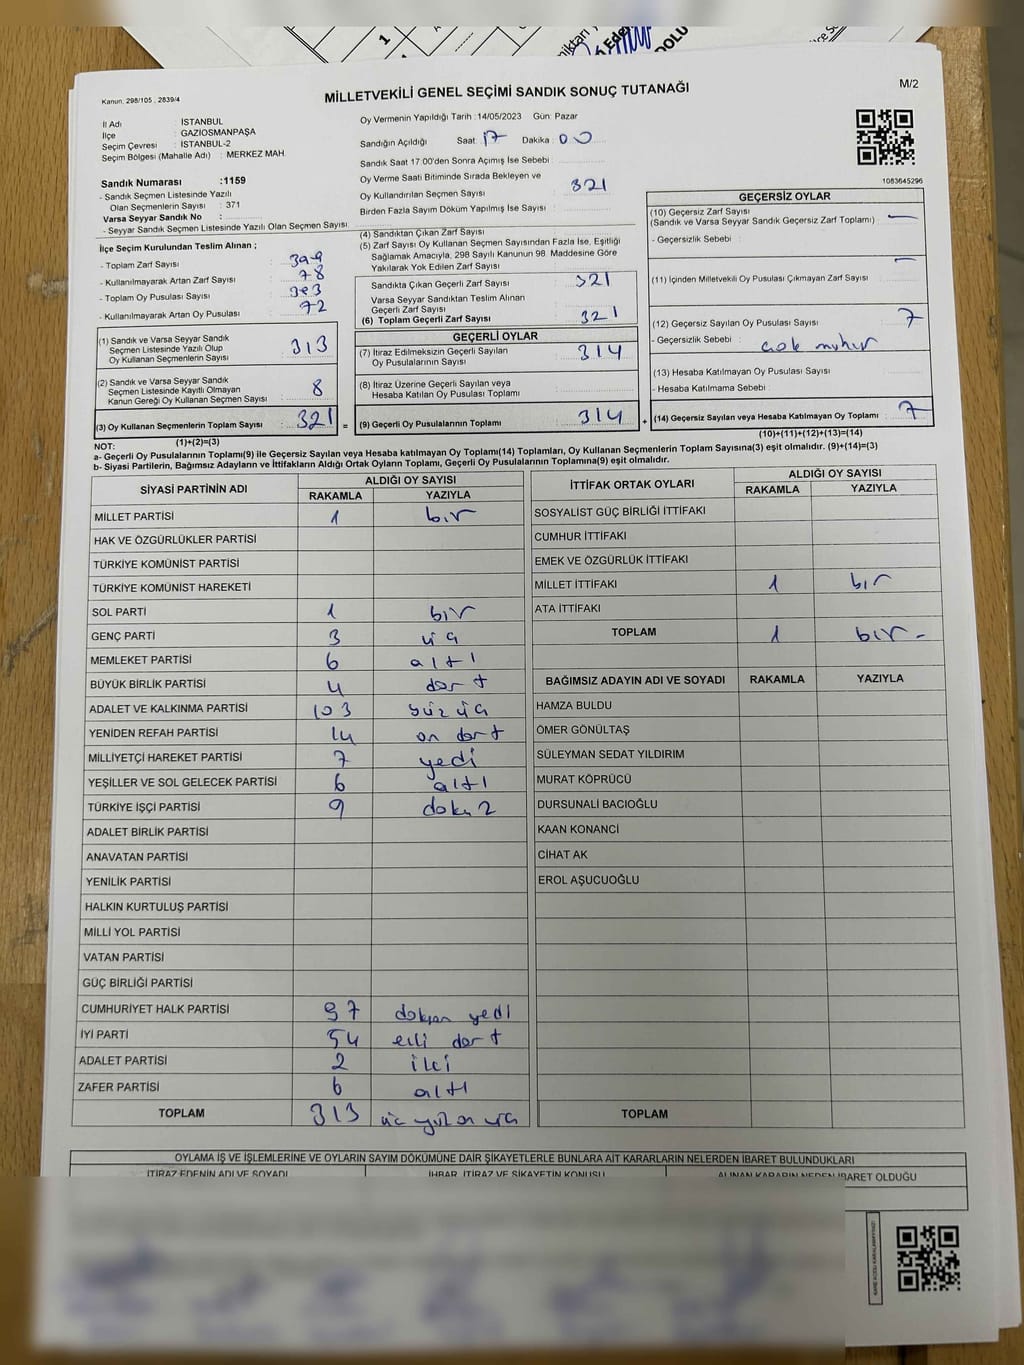 Kanun; 298/105 , 2839/4
MİLLETVEKİLİ GENEL SEÇİMİ SANDIK SONUÇ TUTANAĞI
M/2
İl Adı : İSTANBUL
İlçe : GAZİOSMANPAŞA
Seçim Çevresi : İSTANBUL-2
Seçim Bölgesi (Mahalle Adı) : MERKEZ MAH.
Oy Vermenin Yapıldığı Tarih :14/05/2023 Gün: Pazar
Sandığın Açıldığı Saat: 17 Dakika : 00
Sandık Saat 17:00'den Sonra Açımış İse Sebebi :
Oy Verme Saati Bitiminde Sırada Bekleyen ve
Oy Kullandırılan Seçmen Sayısı : 321
Birden Fazla Sayım Döküm Yapılmış İse Sayısı :
1083645296
Sandık Numarası :1159
- Sandık Seçmen Listesinde Yazılı
Olan Seçmenlerin Sayısı : 371
Varsa Seyyar Sandık No :
- Seyyar Sandık Seçmen Listesinde Yazılı Olan Seçmen Sayısı
İlçe Seçim Kurulundan Teslim Alınan ;
- Toplam Zarf Sayısı :
- Kullanılmayarak Artan Zarf Sayısı : 78
- Toplam Oy Pusulası Sayısı :
- Kullanılmayarak Artan Oy Pusulası : 72
(1) Sandık ve Varsa Seyyar Sandık
Seçmen Listesinde Yazılı Olup
Oy Kullanan Seçmenlerin Sayısı : 313
(2) Sandık ve Varsa Seyyar Sandık
Seçmen Listesinde Kayıtlı Olmayan
Kanun Gereği Oy Kullanan Seçmen Sayısı : 8
(3) Oy Kullanan Seçmenlerin Toplam Sayısı : 321
(1)+(2)=(3)
(4) Sandıktan Çıkan Zarf Sayısı :
(5) Zarf Sayısı Oy Kullanan Seçmen Sayısından Fazla İse, Eşitliği
Sağlamak Amacıyla, 298 Sayılı Kanunun 98. Maddesine Göre
Yakılarak Yok Edilen Zarf Sayısı :
Sandıkta Çıkan Geçerli Zarf Sayısı : 321
Varsa Seyyar Sandıktan Teslim Alınan
Geçerli Zarf Sayısı :
(6) Toplam Geçerli Zarf Sayısı : 321
GEÇERLİ OYLAR
(7) İtiraz Edilmeksizin Geçerli Sayılan
Oy Pusulalarının Sayısı : 314
(8) İtiraz Üzerine Geçerli Sayılan veya
Hesaba Katılan Oy Pusulası Toplamı :
= (9) Geçerli Oy Pusulalarının Toplamı : 314
GEÇERSİZ OYLAR
(10) Geçersiz Zarf Sayısı
(Sandık ve Varsa Seyyar Sandık Geçersiz Zarf Toplamı) : —
- Geçersizlik Sebebi :
(11) İçinden Milletvekili Oy Pusulası Çıkmayan Zarf Sayısı : —
(12) Geçersiz Sayılan Oy Pusulası Sayısı : 7
- Geçersizlik Sebebi : çok mühür
(13) Hesaba Katılmayan Oy Pusulası Sayısı :
- Hesaba Katılmama Sebebi :
+ (14) Geçersiz Sayılan veya Hesaba Katılmayan Oy Toplamı : 7
(10)+(11)+(12)+(13)=(14)
NOT:
a- Geçerli Oy Pusulalarının Toplamı(9) ile Geçersiz Sayılan veya Hesaba katılmayan Oy Toplamı(14) Toplamları, Oy Kullanan Seçmenlerin Toplam Sayısına(3) eşit olmalıdır. (9)+(14)=(3)
b- Siyasi Partilerin, Bağımsız Adayların ve İttifakların Aldığı Ortak Oyların Toplamı, Geçerli Oy Pusulalarının Toplamına(9) eşit olmalıdır.
SİYASİ PARTİNİN ADI ALDIĞI OY SAYISI
RAKAMLA YAZIYLA
MİLLET PARTİSİ 1 bir
HAK VE ÖZGÜRLÜKLER PARTİSİ
TÜRKİYE KOMÜNİST PARTİSİ
TÜRKİYE KOMÜNİST HAREKETİ
SOL PARTİ 1 bir
GENÇ PARTİ 3 üç
MEMLEKET PARTİSİ 6 altı
BÜYÜK BİRLİK PARTİSİ 4 dört
ADALET VE KALKINMA PARTİSİ 103 yüz üç
YENİDEN REFAH PARTİSİ 14 on dört
MİLLİYETÇİ HAREKET PARTİSİ 7 yedi
YEŞİLLER VE SOL GELECEK PARTİSİ 6 altı
TÜRKİYE İŞÇİ PARTİSİ 9 dokuz
ADALET BİRLİK PARTİSİ
ANAVATAN PARTİSİ
YENİLİK PARTİSİ
HALKIN KURTULUŞ PARTİSİ
MİLLİ YOL PARTİSİ
VATAN PARTİSİ
GÜÇ BİRLİĞİ PARTİSİ
CUMHURİYET HALK PARTİSİ 97 doksan yedi
İYİ PARTİ 54 elli dört
ADALET PARTİSİ 2 iki
ZAFER PARTİSİ 6 altı
TOPLAM 313 üç yüz on üç
İTTİFAK ORTAK OYLARI ALDIĞI OY SAYISI
RAKAMLA YAZIYLA
SOSYALİST GÜÇ BİRLİĞİ İTTİFAKI
CUMHUR İTTİFAKI
EMEK VE ÖZGÜRLÜK İTTİFAKI
MİLLET İTTİFAKI 1 bir
ATA İTTİFAKI
TOPLAM 1 bir -
BAĞIMSIZ ADAYIN ADI VE SOYADI RAKAMLA YAZIYLA
HAMZA BULDU
ÖMER GÖNÜLTAŞ
SÜLEYMAN SEDAT YILDIRIM
MURAT KÖPRÜCÜ
DURSUNALİ BACIOĞLU
KAAN KONANCİ
CİHAT AK
EROL AŞUCUOĞLU
TOPLAM
OYLAMA İŞ VE İŞLEMLERİNE VE OYLARIN SAYIM DÖKÜMÜNE DAİR ŞİKAYETLERLE BUNLARA AİT KARARLARIN NELERDEN İBARET BULUNDUKLARI
İTİRAZ EDENİN ADI VE SOYADI İHBAR, İTİRAZ VE ŞİKAYETİN KONUSU ALINAN KARARIN NEDEN İBARET OLDUĞU